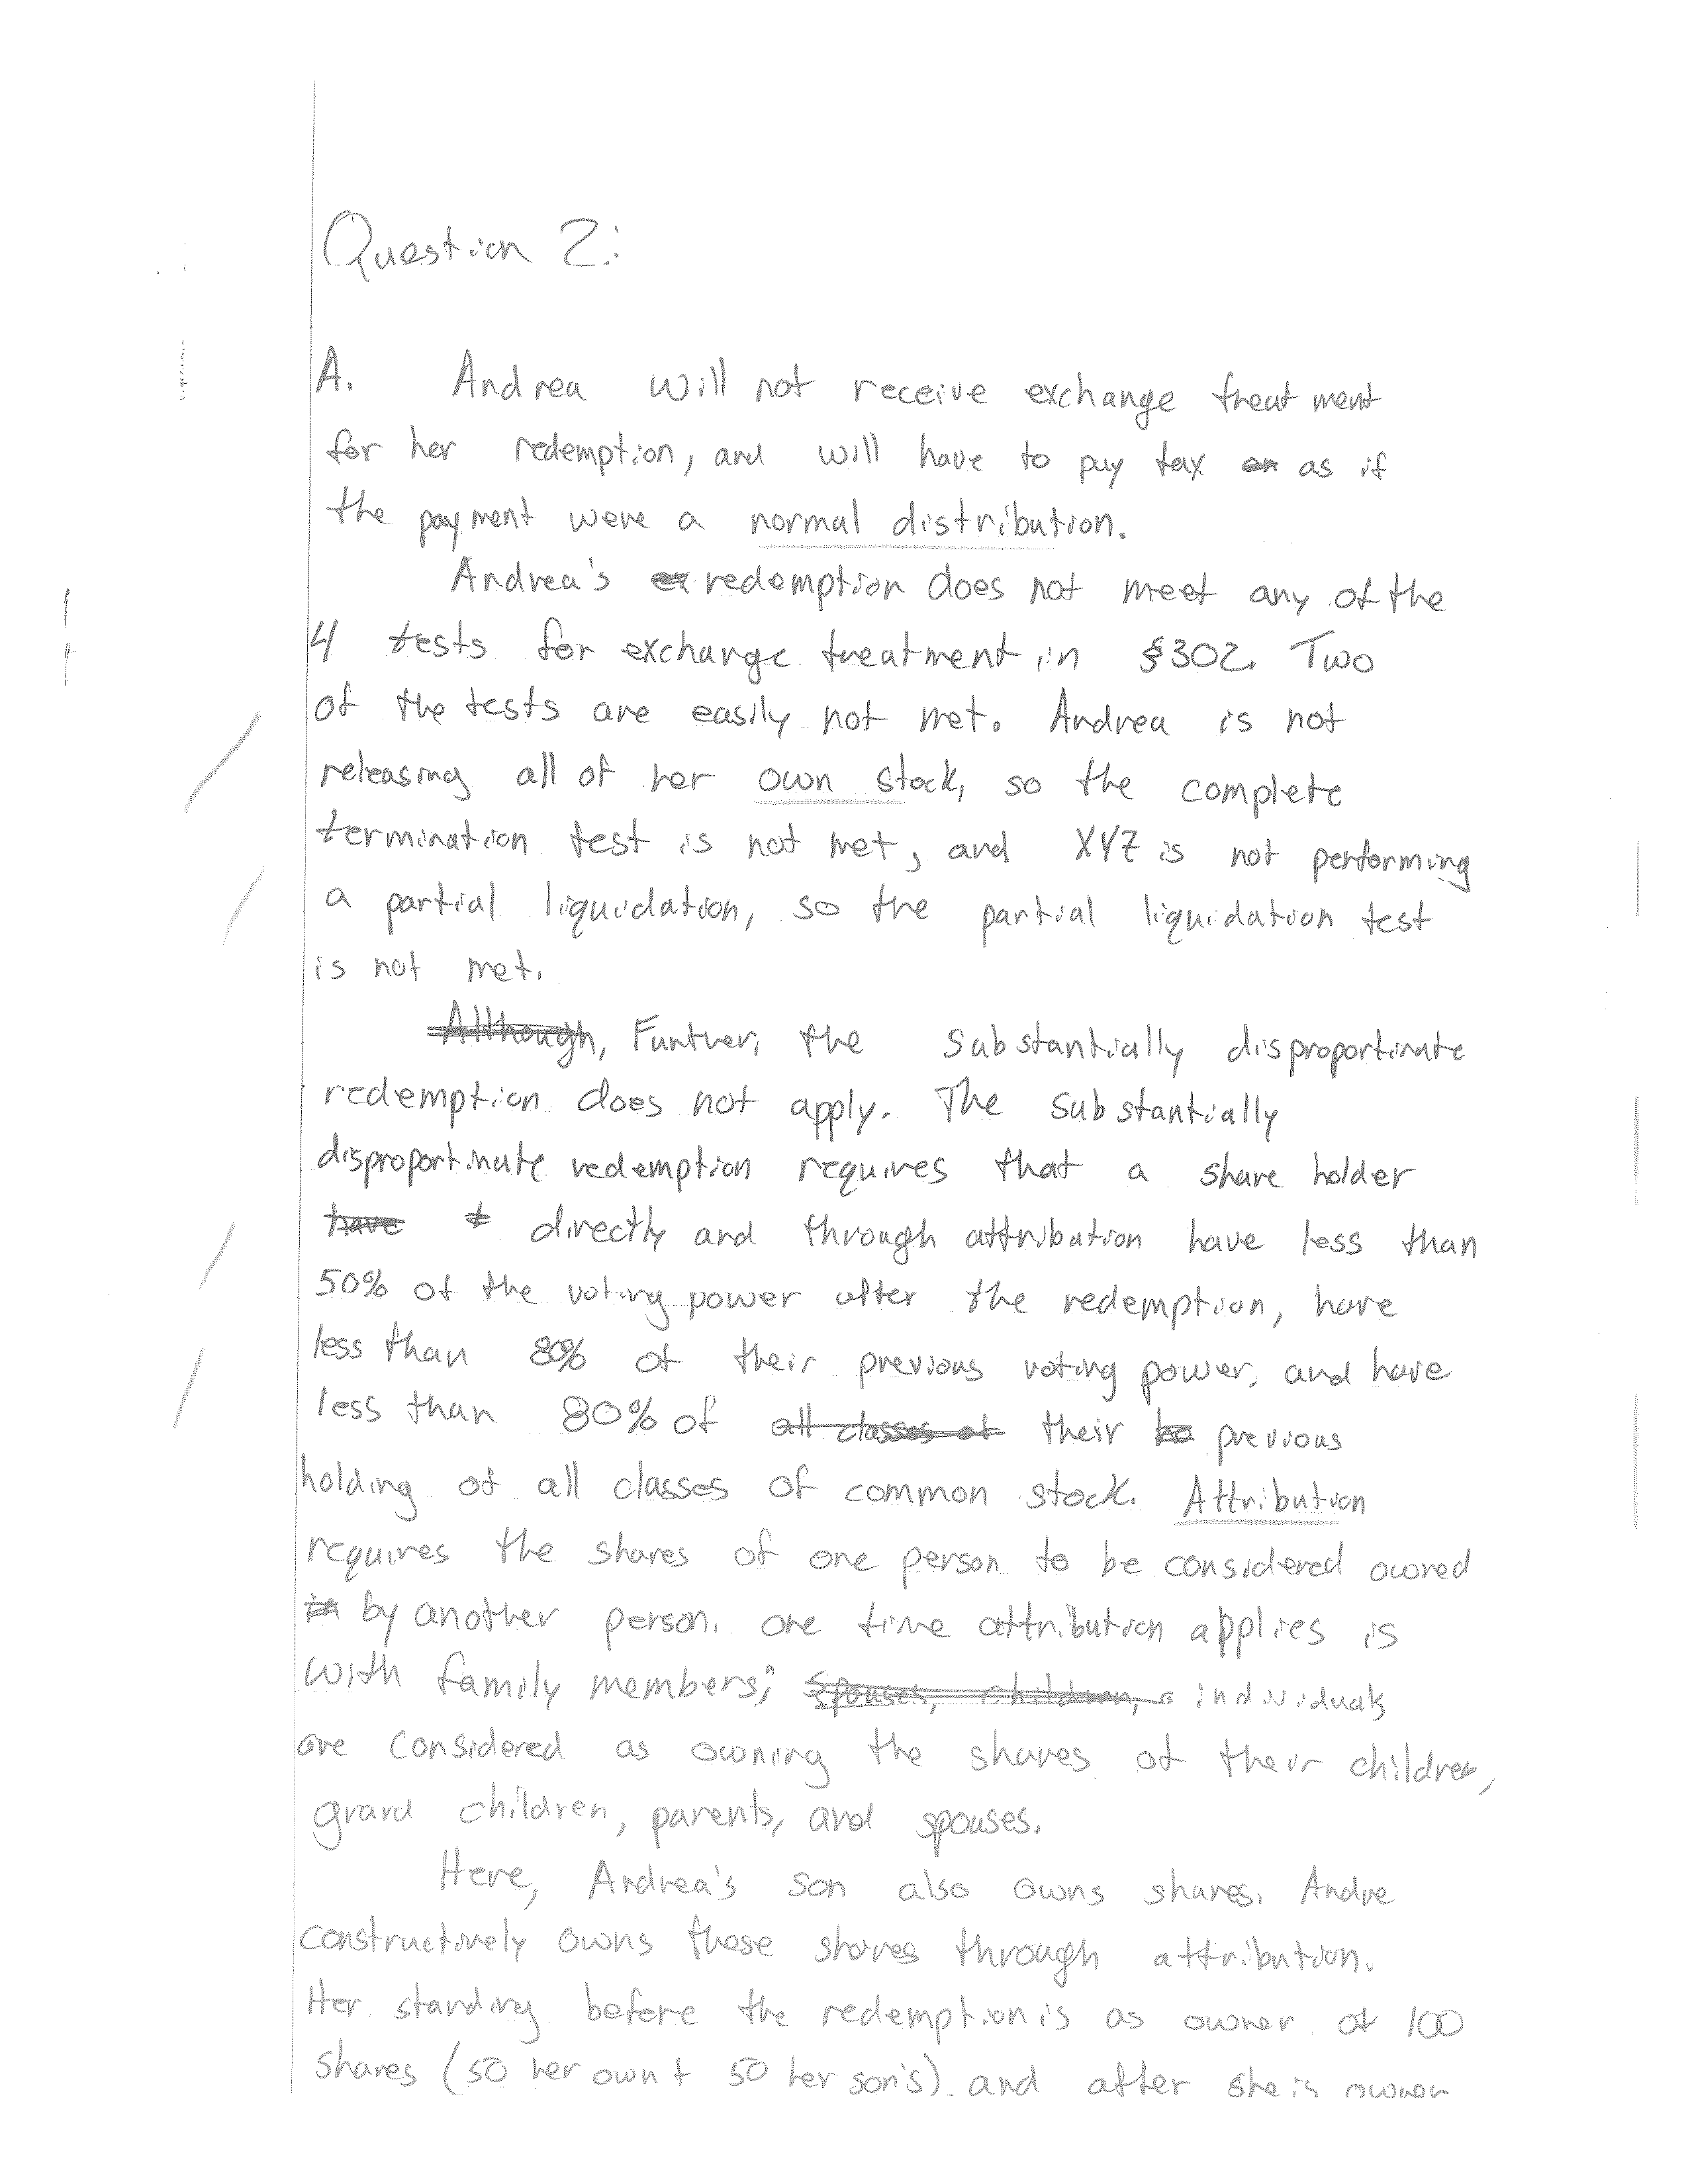 Question 2:
A. Andrea will not receive exchange treatment
for her redemption, and will have to pay tax on as if
the payment were a normal distribution.
Andrea's ex redemption does not meet any of the
4 tests for exchange treatment in §302. Two
of the tests are easily not met. Andrea is not
releasing all of her own stock, so the complete
termination test is not met, and XYZ is not performing
a partial liquidation, so the partial liquidation test
is not met.
Although, Further, the substantially disproportinate
redemption does not apply. The substantially
disproportinate redemption requires that a share holder
have t directly and through attribution have less than
50% of the voting power after the redemption, have
less than 80% of their previous voting power, and have
less than 80% of all classes of their ho previous
holding of all classes of common stock. Attribution
requires the shares of one person to be considered owned
in by another person. One time attribution applies is
with family members; Spouses, children, individuals
are considered as owning the shares of their children,
grand children, parents, and spouses.
Here, Andrea's son also owns shares. Andre
constructively owns these shares through attribution.
Her standing before the redemption is as owner of 100
shares (50 her own + 50 her son's) and after she is owner